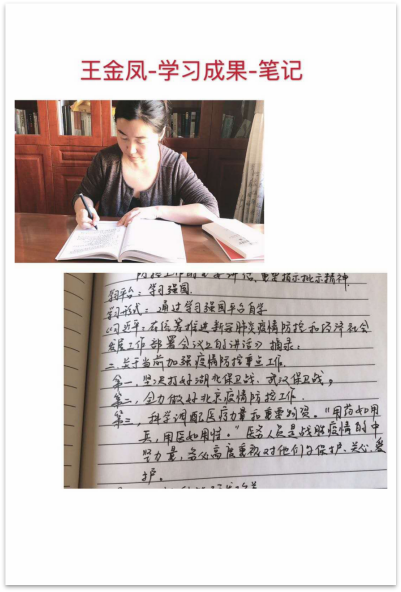 王金凤-学习成果-笔记
防控工作的重要讲话、重要指示批示精神
学习平台:学习强国
学习形式:通过学习强国平台自学
《习近平:在统筹推进新冠肺炎疫情防控和经济社会
发展工作部署会议上的讲话》摘录:
二、关于当前加强疫情防控重点工作.
第一,坚决打好湖北保卫战、武汉保卫战。
第二,全力做好北京疫情防控工作.
第三,科学调配医疗力量和重要物资。"用药如用
兵,用医如用将。"医务人员是战胜疫情的中
坚力量,务必高度重视对他们的保护、关心、爱
护。